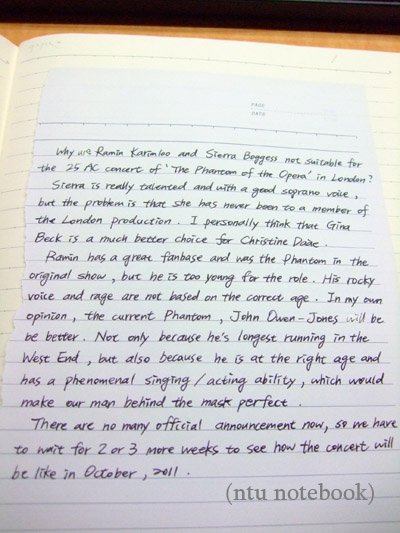 PAGE
DATE
Why are Ramin Karimloo and Sierra Boggess not suitable for
the 25 AC concert of 'The Phantom of the Opera' in London?
Sierra is really talented and with a good soprano voice,
but the problem is that she has never been to a member of
the London production. I personally think that Gina
Beck is a much better choice for Christine Daaé.
Ramin has a great fanbase and was the Phantom in the
original show, but he is too young for the role. His rocky
voice and rage are not based on the correct age. In my own
opinion, the current Phantom, John Owen-Jones will be
be better. Not only because he's longest running in the
West End, but also because he is at the right age and
has a phenomenal singing/acting ability, which would
make our man behind the mask perfect.
There are no many official announcement now, so we have
to wait for 2 or 3 more weeks to see how the concert will
be like in October, 2011.
(ntu notebook)